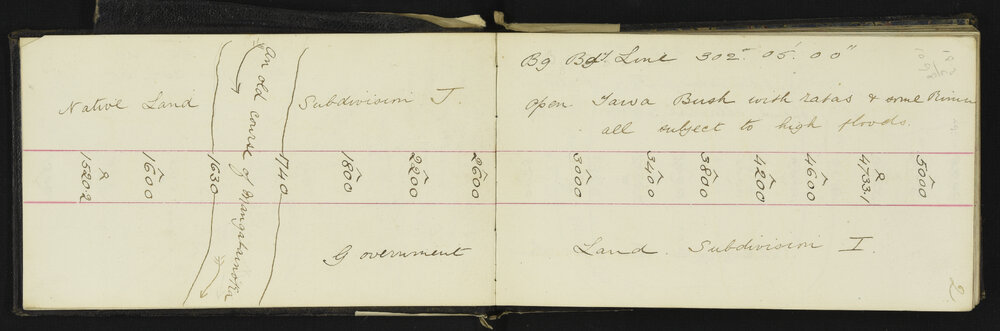 Native Land
An old course of Mangatainoka
Subdivision J.
1520.2
1600
1630
1740
1800
2200
2600
Government
Bg Bdy. Line 302° 05' 00"
Open Tawa Bush with ratas & some Rimu
all subject to high floods.
3000
3400
3800
4200
4600
4733.1
5000
Land. Subdivision I.
2